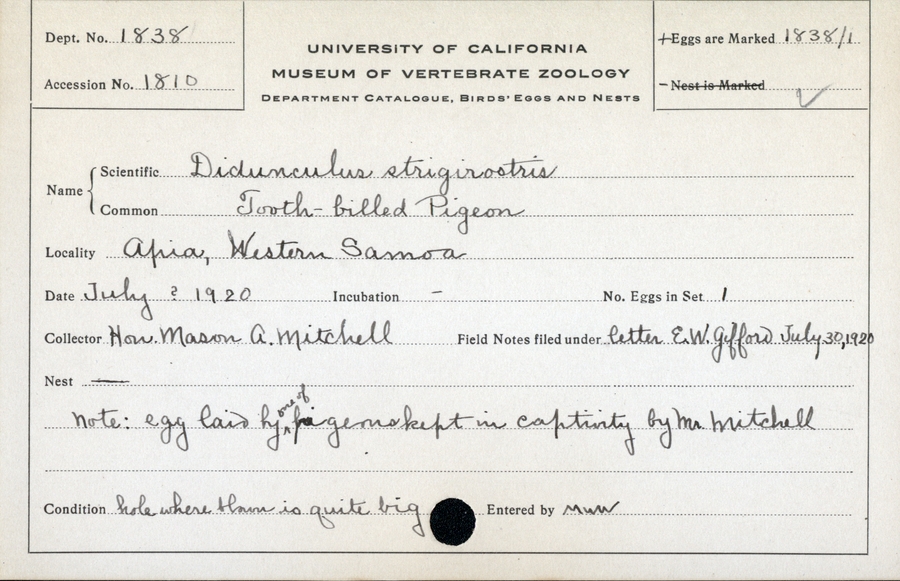 Dept. No. 1838
Accession No. 1810
UNIVERSITY OF CALIFORNIA
MUSEUM OF VERTEBRATE ZOOLOGY
DEPARTMENT CATALOGUE, BIRDS' EGGS AND NESTS
+Eggs are Marked 1838/1
- Nest is Marked
Name
Scientific Didunculus strigirostris
Common Tooth-billed Pigeon
Locality Apia, Western Samoa
Date July ? 1920 Incubation - No. Eggs in Set 1
Collector Hon. Mason A. Mitchell Field Notes filed under letter E.W. Gifford July 30, 1920
Nest —
Note: egg laid by one of pigeons kept in captivity by Mr. Mitchell
Condition hole where blown is quite big Entered by